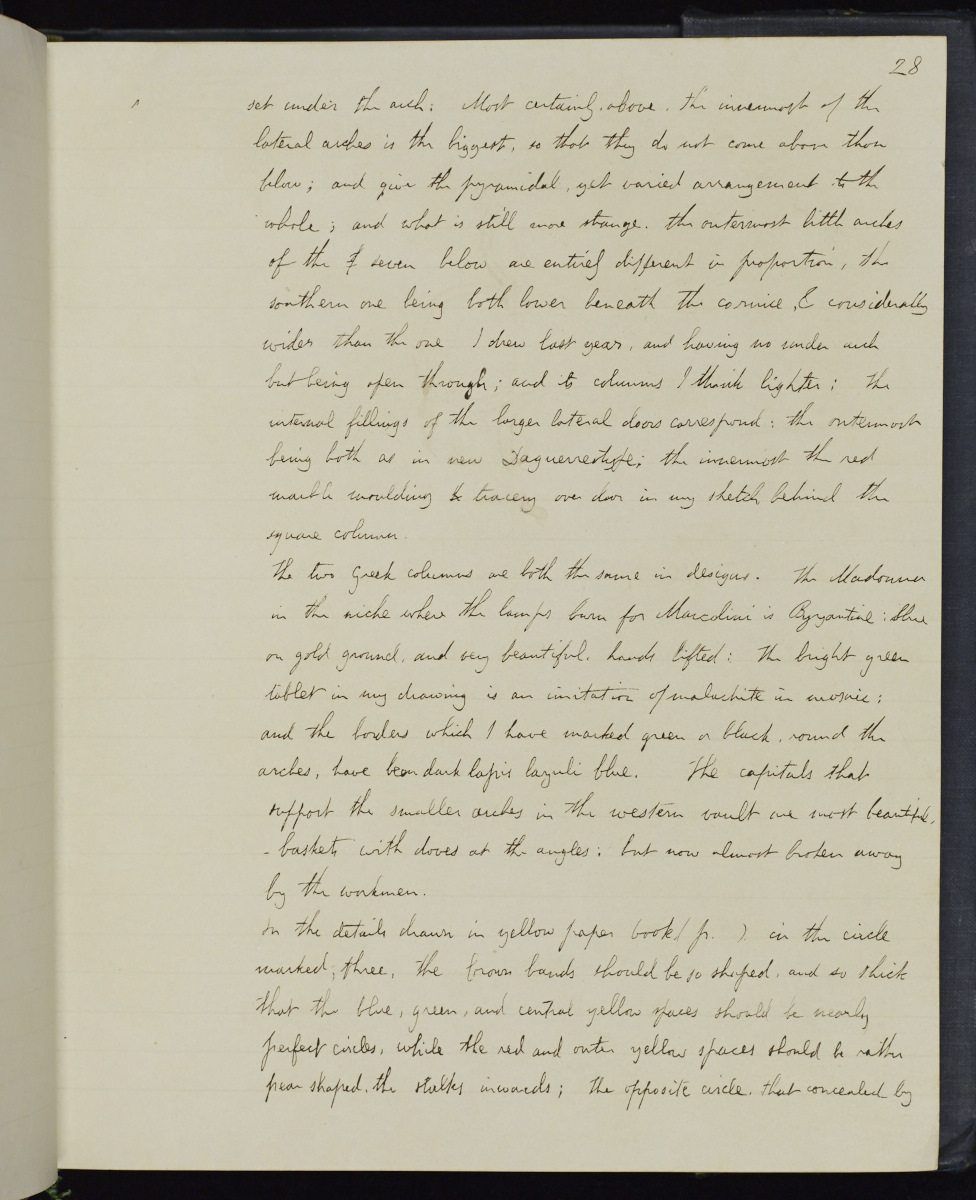 28
set under the arch: Most certainly. above. the innermost of the
lateral arches is the biggest, so that they do not come above those
below; and give the pyramidal, yet varied arrangement to the
whole; and what is still more strange. the outermost little arches
of the seven below are entirely different in proportion, the
southern one being both lower beneath the cornice, & considerably
wider than the one I drew last year, and having no under arch
but being open through; and its columns I think lighter: the
internal fillings of the larger lateral doors correspond: the outermost
being both as in new Daguerreotype; the innermost the red
marble moulding & tracery over door in my sketch behind the
square column.
The two Greek columns are both the same in design. The Madonna
in the niche where the lamps burn for Marcolini is Byzantine: blue
on gold ground, and very beautiful. hands lifted: the bright green
tablet in my drawing is an imitation of malachite in mosaic;
and the borders which I have marked green or black, round the
arches, have been dark lapis lazuli blue. The capitals that
support the smaller arches in the western vault are most beautiful,
- baskets with doves at the angles: but now almost broken away
by the workmen.
In the details drawn in yellow paper book (p. ). in the circle
marked, three, the brown bands should be so shaped, and so thick
that the blue, green, and central yellow spaces should be nearly
perfect circles, while the red and outer yellow spaces should be rather
pear shaped. the stalks inwards; the opposite circle. that concealed by